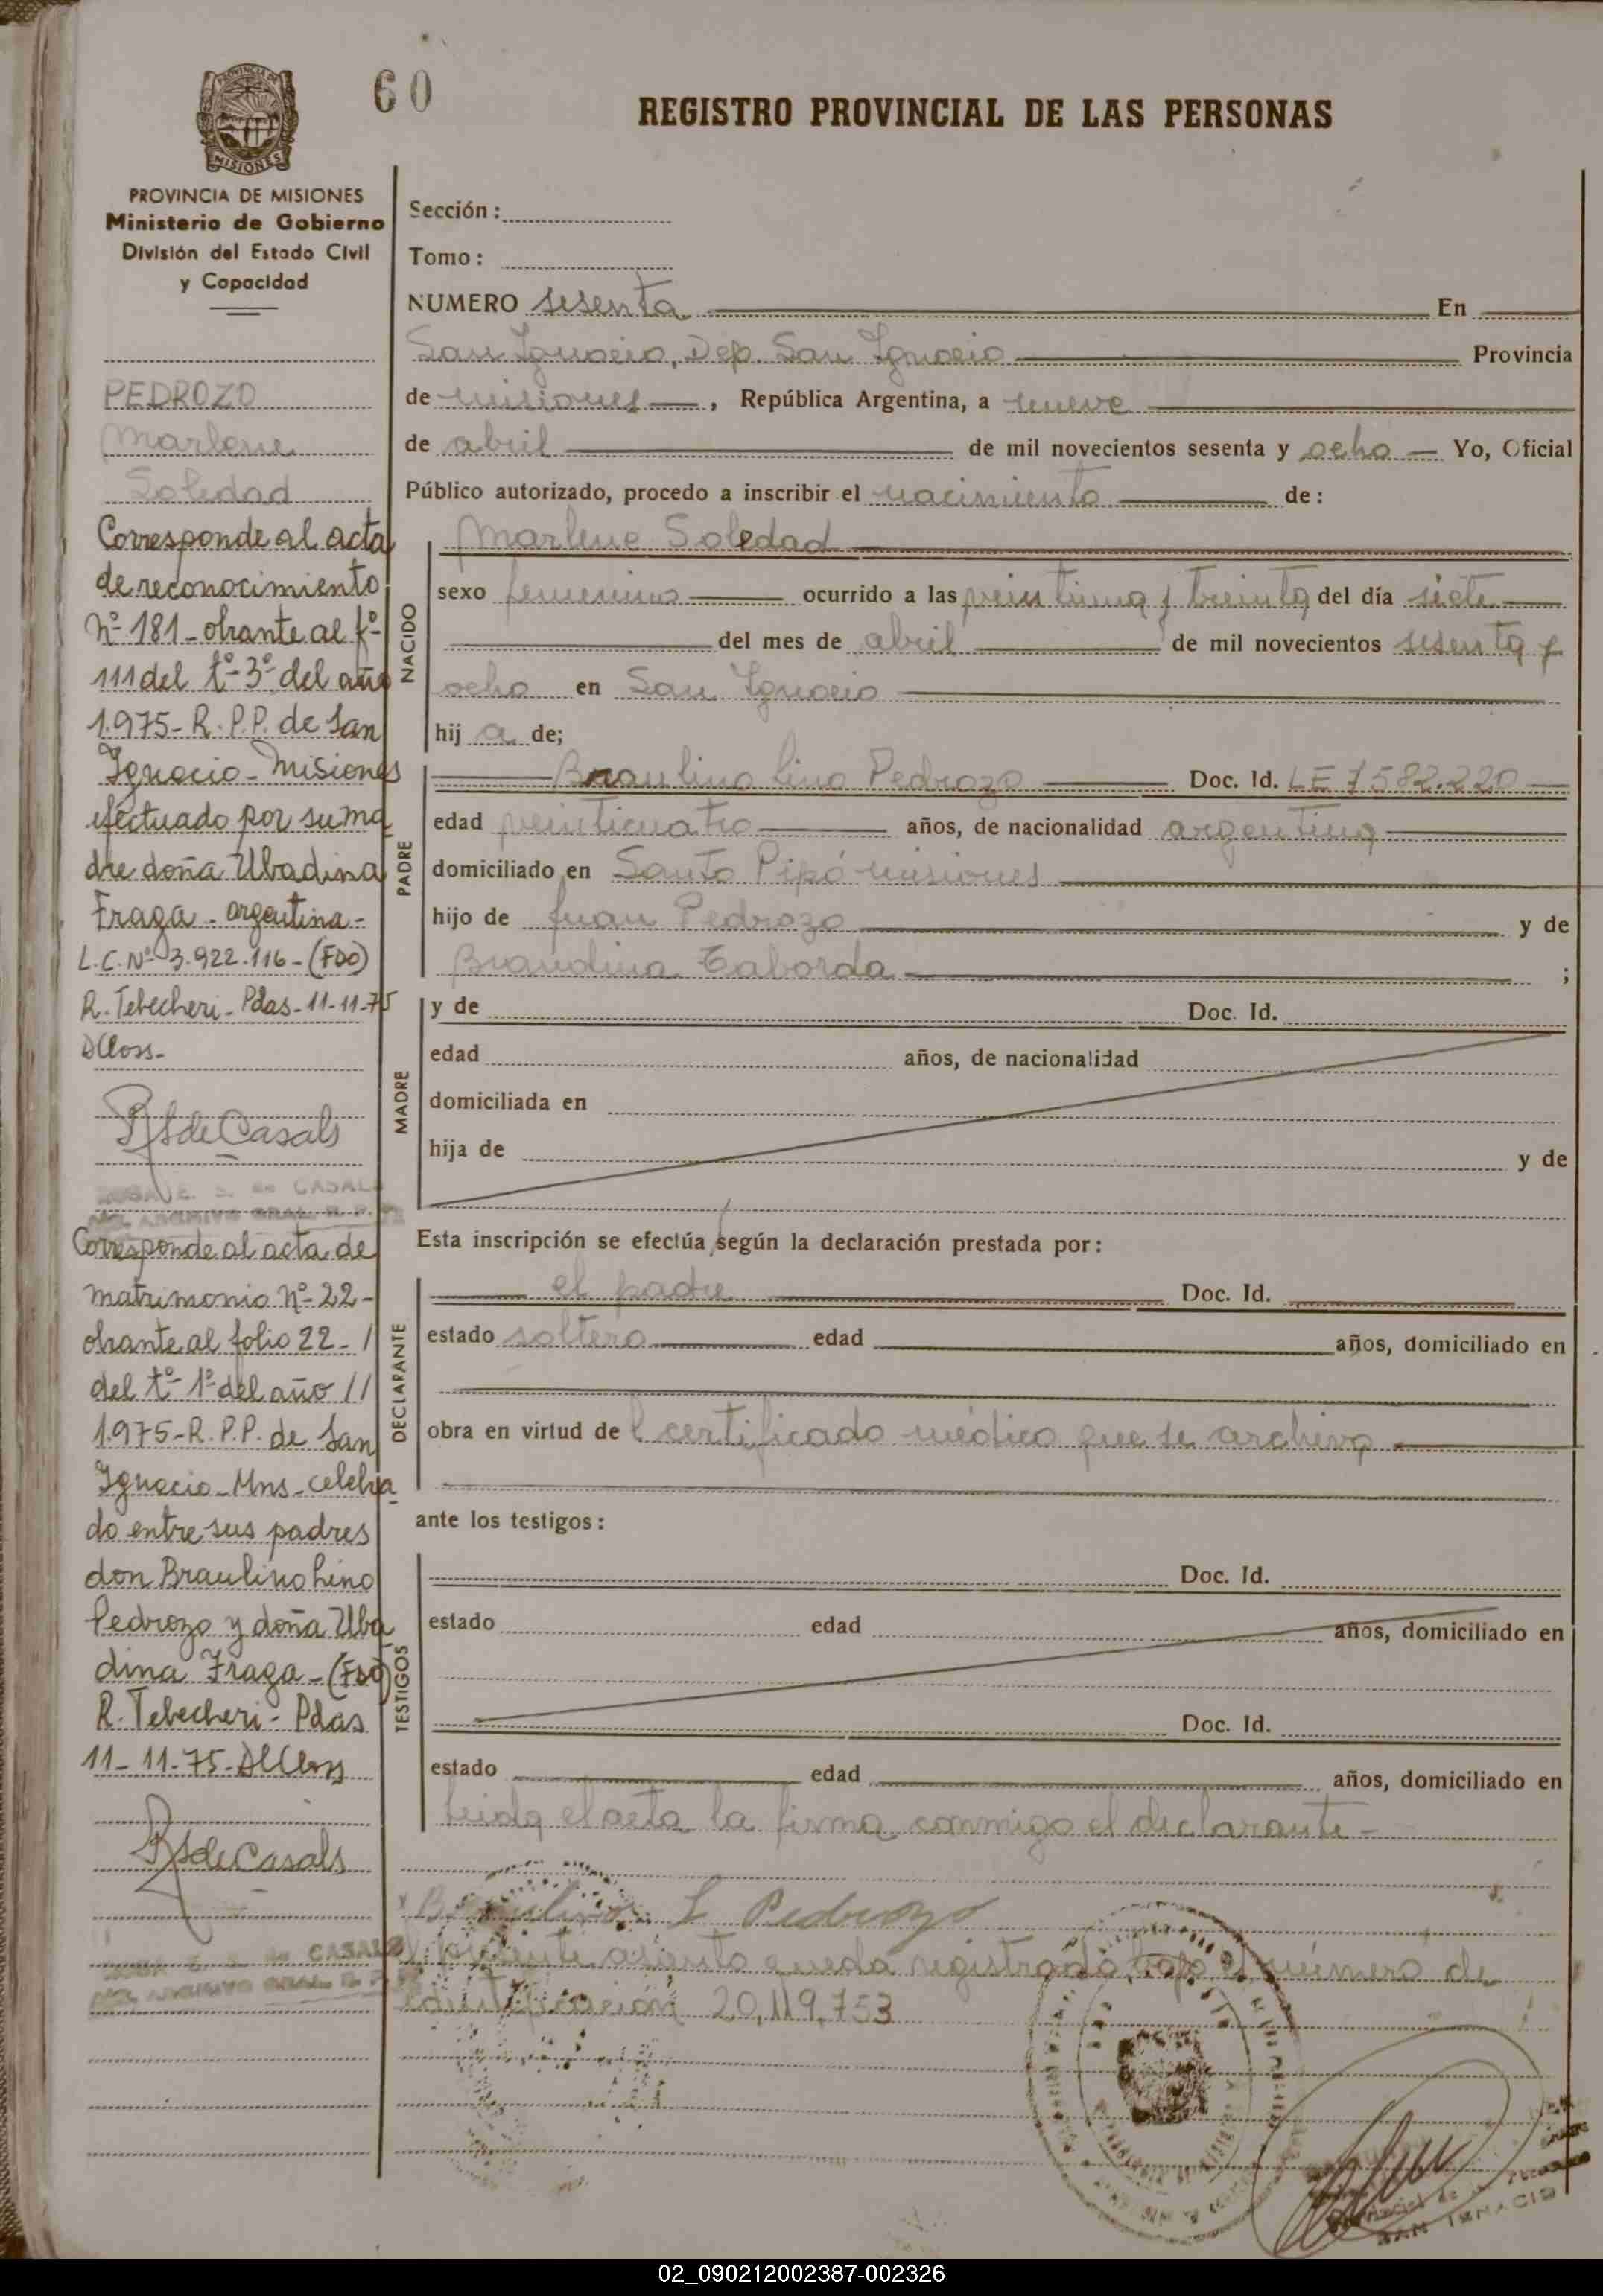 60
REGISTRO PROVINCIAL DE LAS PERSONAS
PROVINCIA DE
MISIONES
PROVINCIA DE MISIONES
Ministerio de Gobierno
División del Estado Civil
y Capacidad
PEDROZO
Marlene
Soledad
Corresponde al acta
de reconocimiento
Nº 181 - obrante al fº
111 del tº 3º del año
1.975 - R. P.P. de San
Ignacio - Misiones
efectuado por su ma
dre doña Ubadina
Fraga - argentina -
L.C. Nº 3.922.116 - (FDO)
R. Tebecheri - Pdas - 11-11-75
DCloss -
RSdeCasals
CASALS
Corresponde al acta de
matrimonio Nº 22 -
obrante al folio 22 - /
del tº 1º del año //
1.975 - R. P.P. de San
Ignacio - Mns - celebra
do entre sus padres
don Braulino Lino
Pedrozo y doña Uba
dina Fraga - (FDO)
R. Tebecheri - Pdas
11 - 11 - 75 - DCloss
RSdeCasals
CASALS
Sección :
Tomo :
NUMERO sesenta En
San Ignacio, Dep. San Ignacio Provincia
de misiones , República Argentina, a nueve
de abril de mil novecientos sesenta y ocho Yo, Oficial
Público autorizado, procedo a inscribir el nacimiento de :
NACIDO
Marlene Soledad
sexo femenino ocurrido a las veintiuna y treinta del día siete
del mes de abril de mil novecientos sesenta y
ocho en San Ignacio
hij a de;
PADRE
Braulino Lino Pedrozo Doc. Id. LE 7582.220
edad veinticuatro años, de nacionalidad argentina
domiciliado en Santo Pipó misiones
hijo de Juan Pedrozo y de
Brandina Taborda ;
MADRE
y de Doc. Id.
edad años, de nacionalidad
domiciliada en
hija de y de
Esta inscripción se efectúa según la declaración prestada por :
DECLARANTE
el padre Doc. Id.
estado soltero edad años, domiciliado en
obra en virtud de l certificado médico que se archiva
ante los testigos :
TESTIGOS
Doc. Id.
estado edad años, domiciliado en
Doc. Id.
estado edad años, domiciliado en
Leida el acta la firma conmigo el declarante -
Braulino L Pedrozo
El presente asiento queda registrado bajo el número de
identificación 20,119,753
SAN IGNACIO
02_090212002387-002326